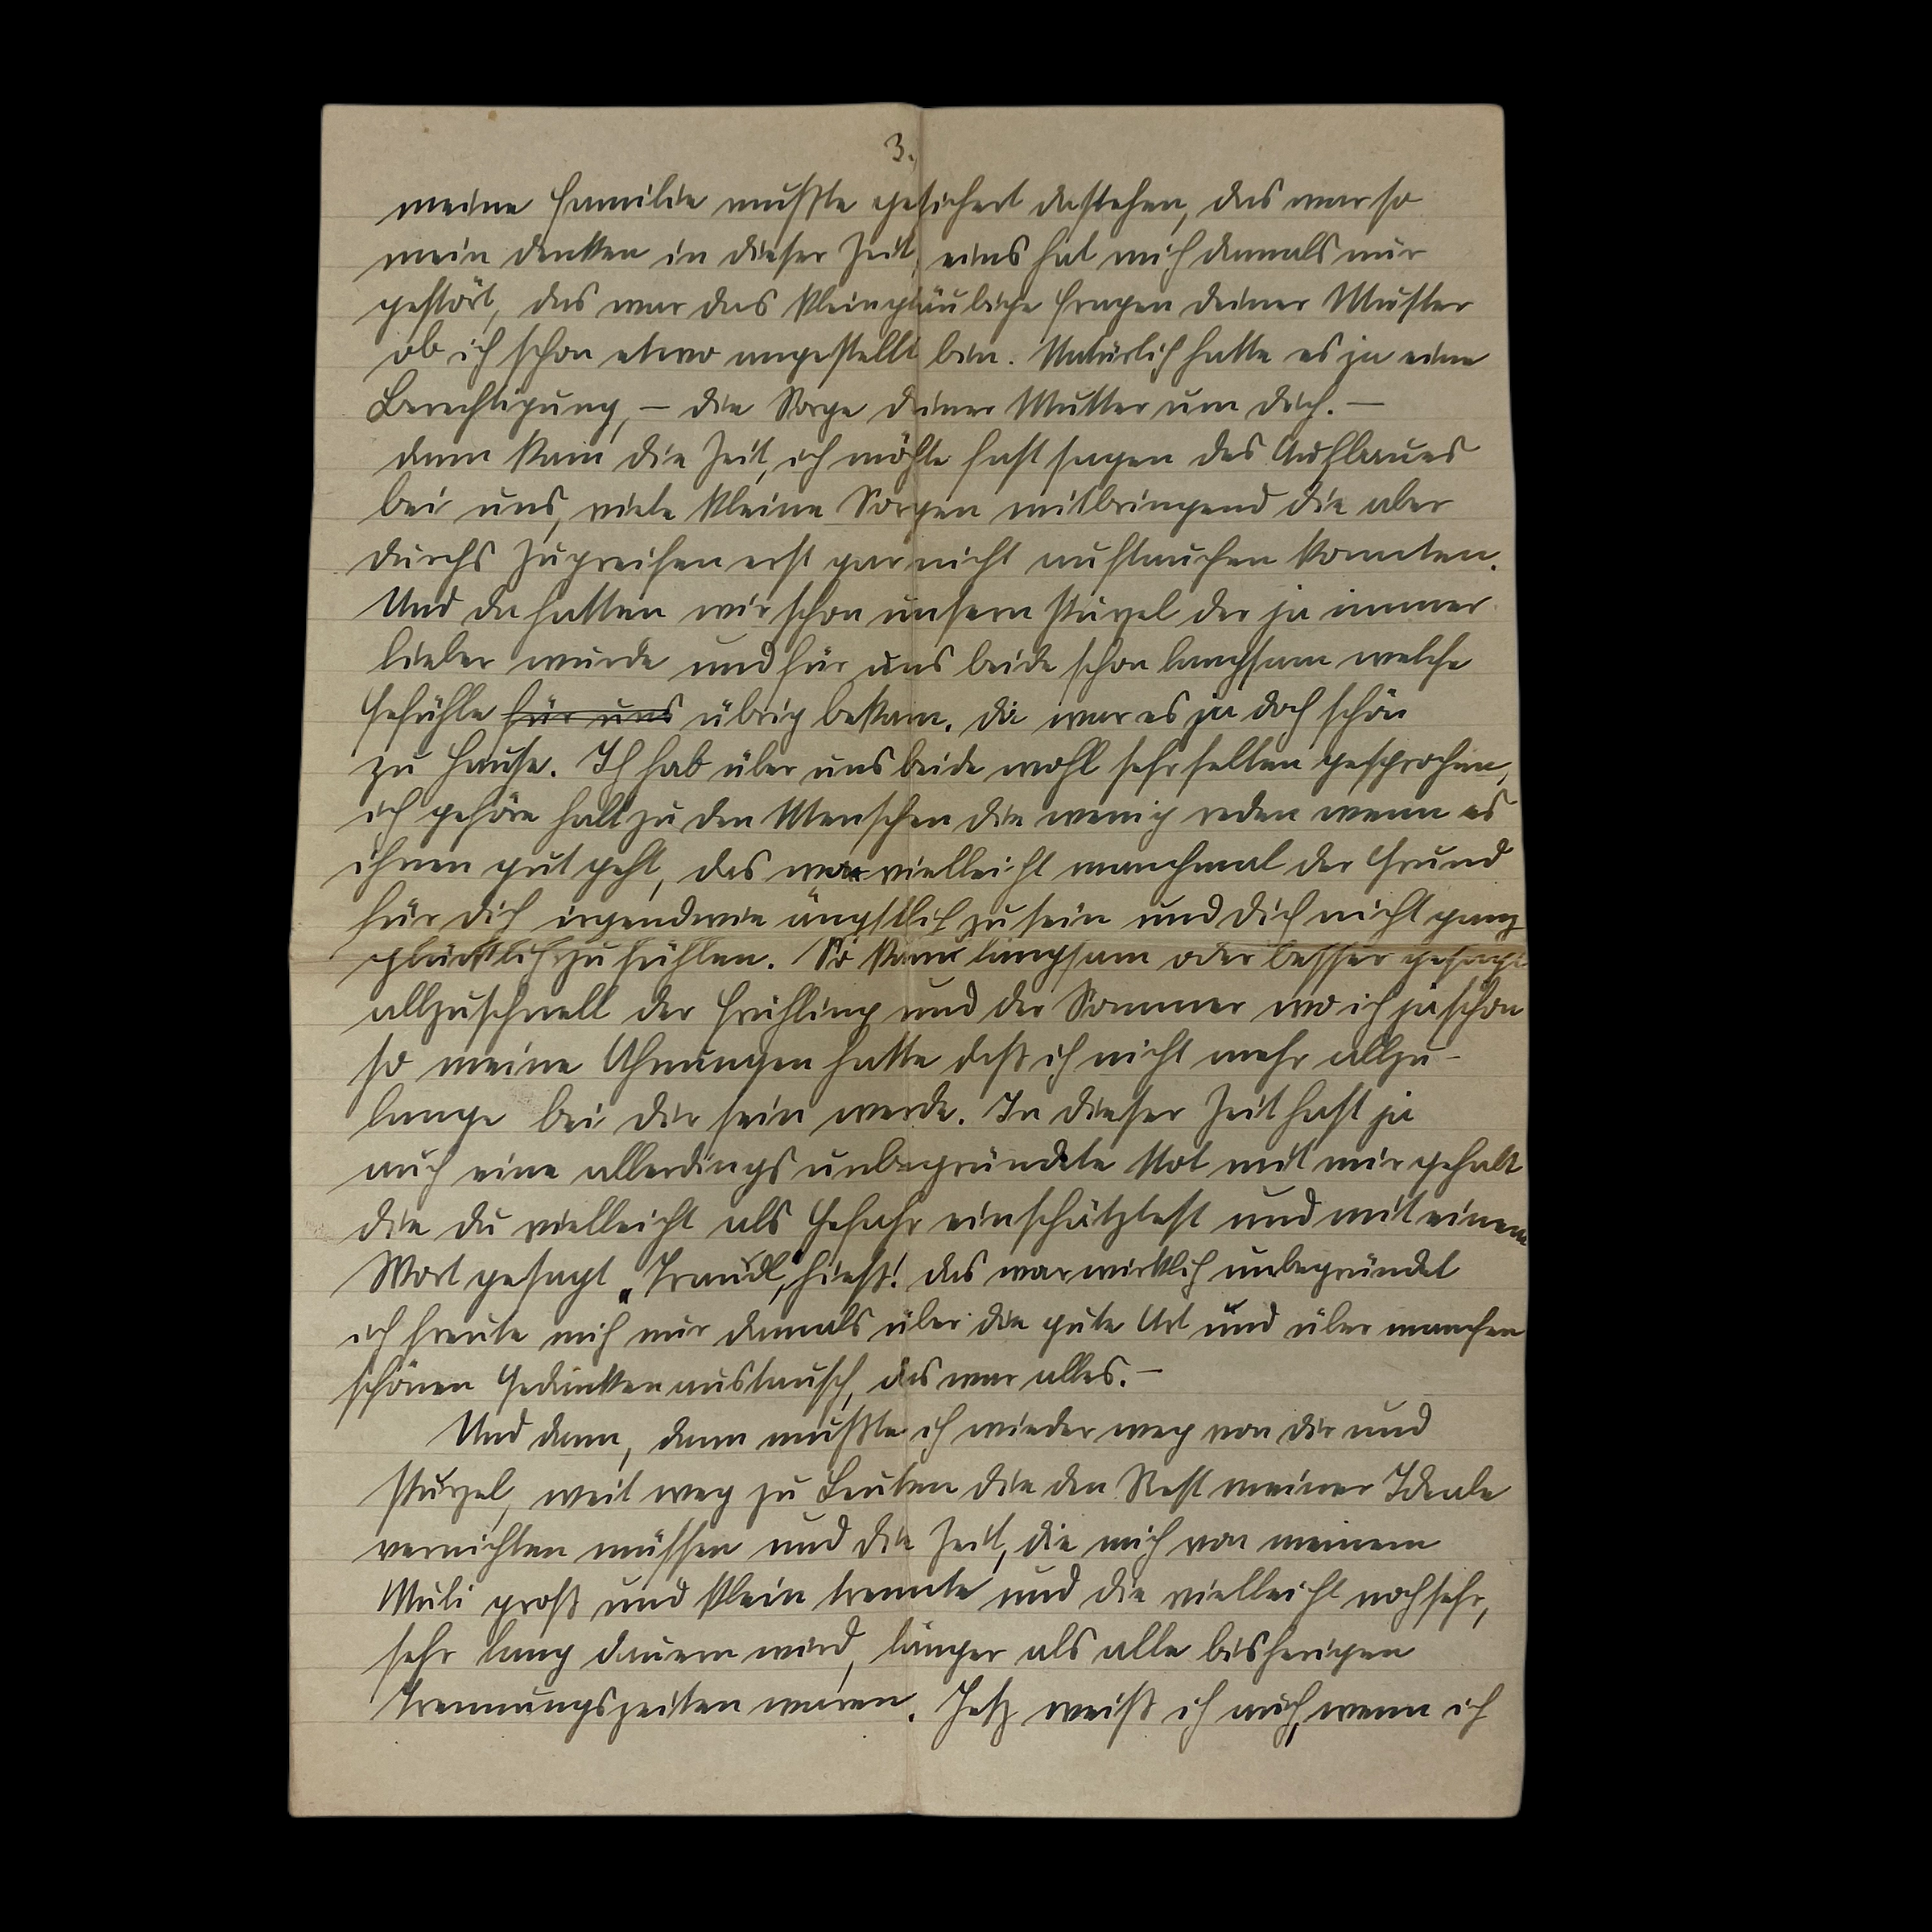 3.
meine Familie mußte gesichert dastehen, das war so
mein denken in dieser Zeit, eins hat mich damals nur
gestört, das war das kleingläubige fragen deiner Mutter
ob ich schon etwo angestellt bin. Natürlich hatte es ja eine
Berechtigung, — die Sorge deiner Mutter um dich. —
dann kam die Zeit, ich möchte fast sagen des Aufbaues
bei uns, viele kleine Sorgen mitbringend die aber
durchs Zugreifen erst gar nicht auftauchen konnten.
Und da hatten wir schon unsern Purzel der ja immer
lieber wurde und für uns beide schon langsam welche
Gefühle für uns übrig bekam. da war es ja doch schön
zu Hause. Ich hab über uns beide wohl sehr selten gesprochen,
ich gehöre halt zu den Menschen die wenig reden wenn es
ihnen gut geht, das war vielleicht manchmal der Grund
für dich irgendwie ängstlich zu sein und dich nicht ganz
glücklich zu fühlen. So kam langsam oder besser gesagt
allzuschnell der Frühling und der Sommer wo ich ja schon
so meine Ahnungen hatte daß ich nicht mehr allzu-
lange bei dir sein werde. In dieser Zeit hast ja
auch eine allerdings unbegründete Not mit mir gehabt
die du vielleicht als Gefahr einschätztest und mit einem
Wort gesagt „Traudl“ hieß! das war wirklich unbegründet
ich freute mich nur damals über die gute Art und über manchen
schönen Gedankenaustausch, das war alles. —
Und dann, dann mußte ich wieder weg von dir und
Purzel, weit weg zu Leuten die den Rest meiner Ideale
vernichten müssen und die Zeit, die mich von meinem
Muli groß und klein trennte und die vielleicht noch sehr,
sehr lang dauern wird, länger als alle bisherigen
Trennungszeiten waren. Jetz weiß ich auch, wenn ich